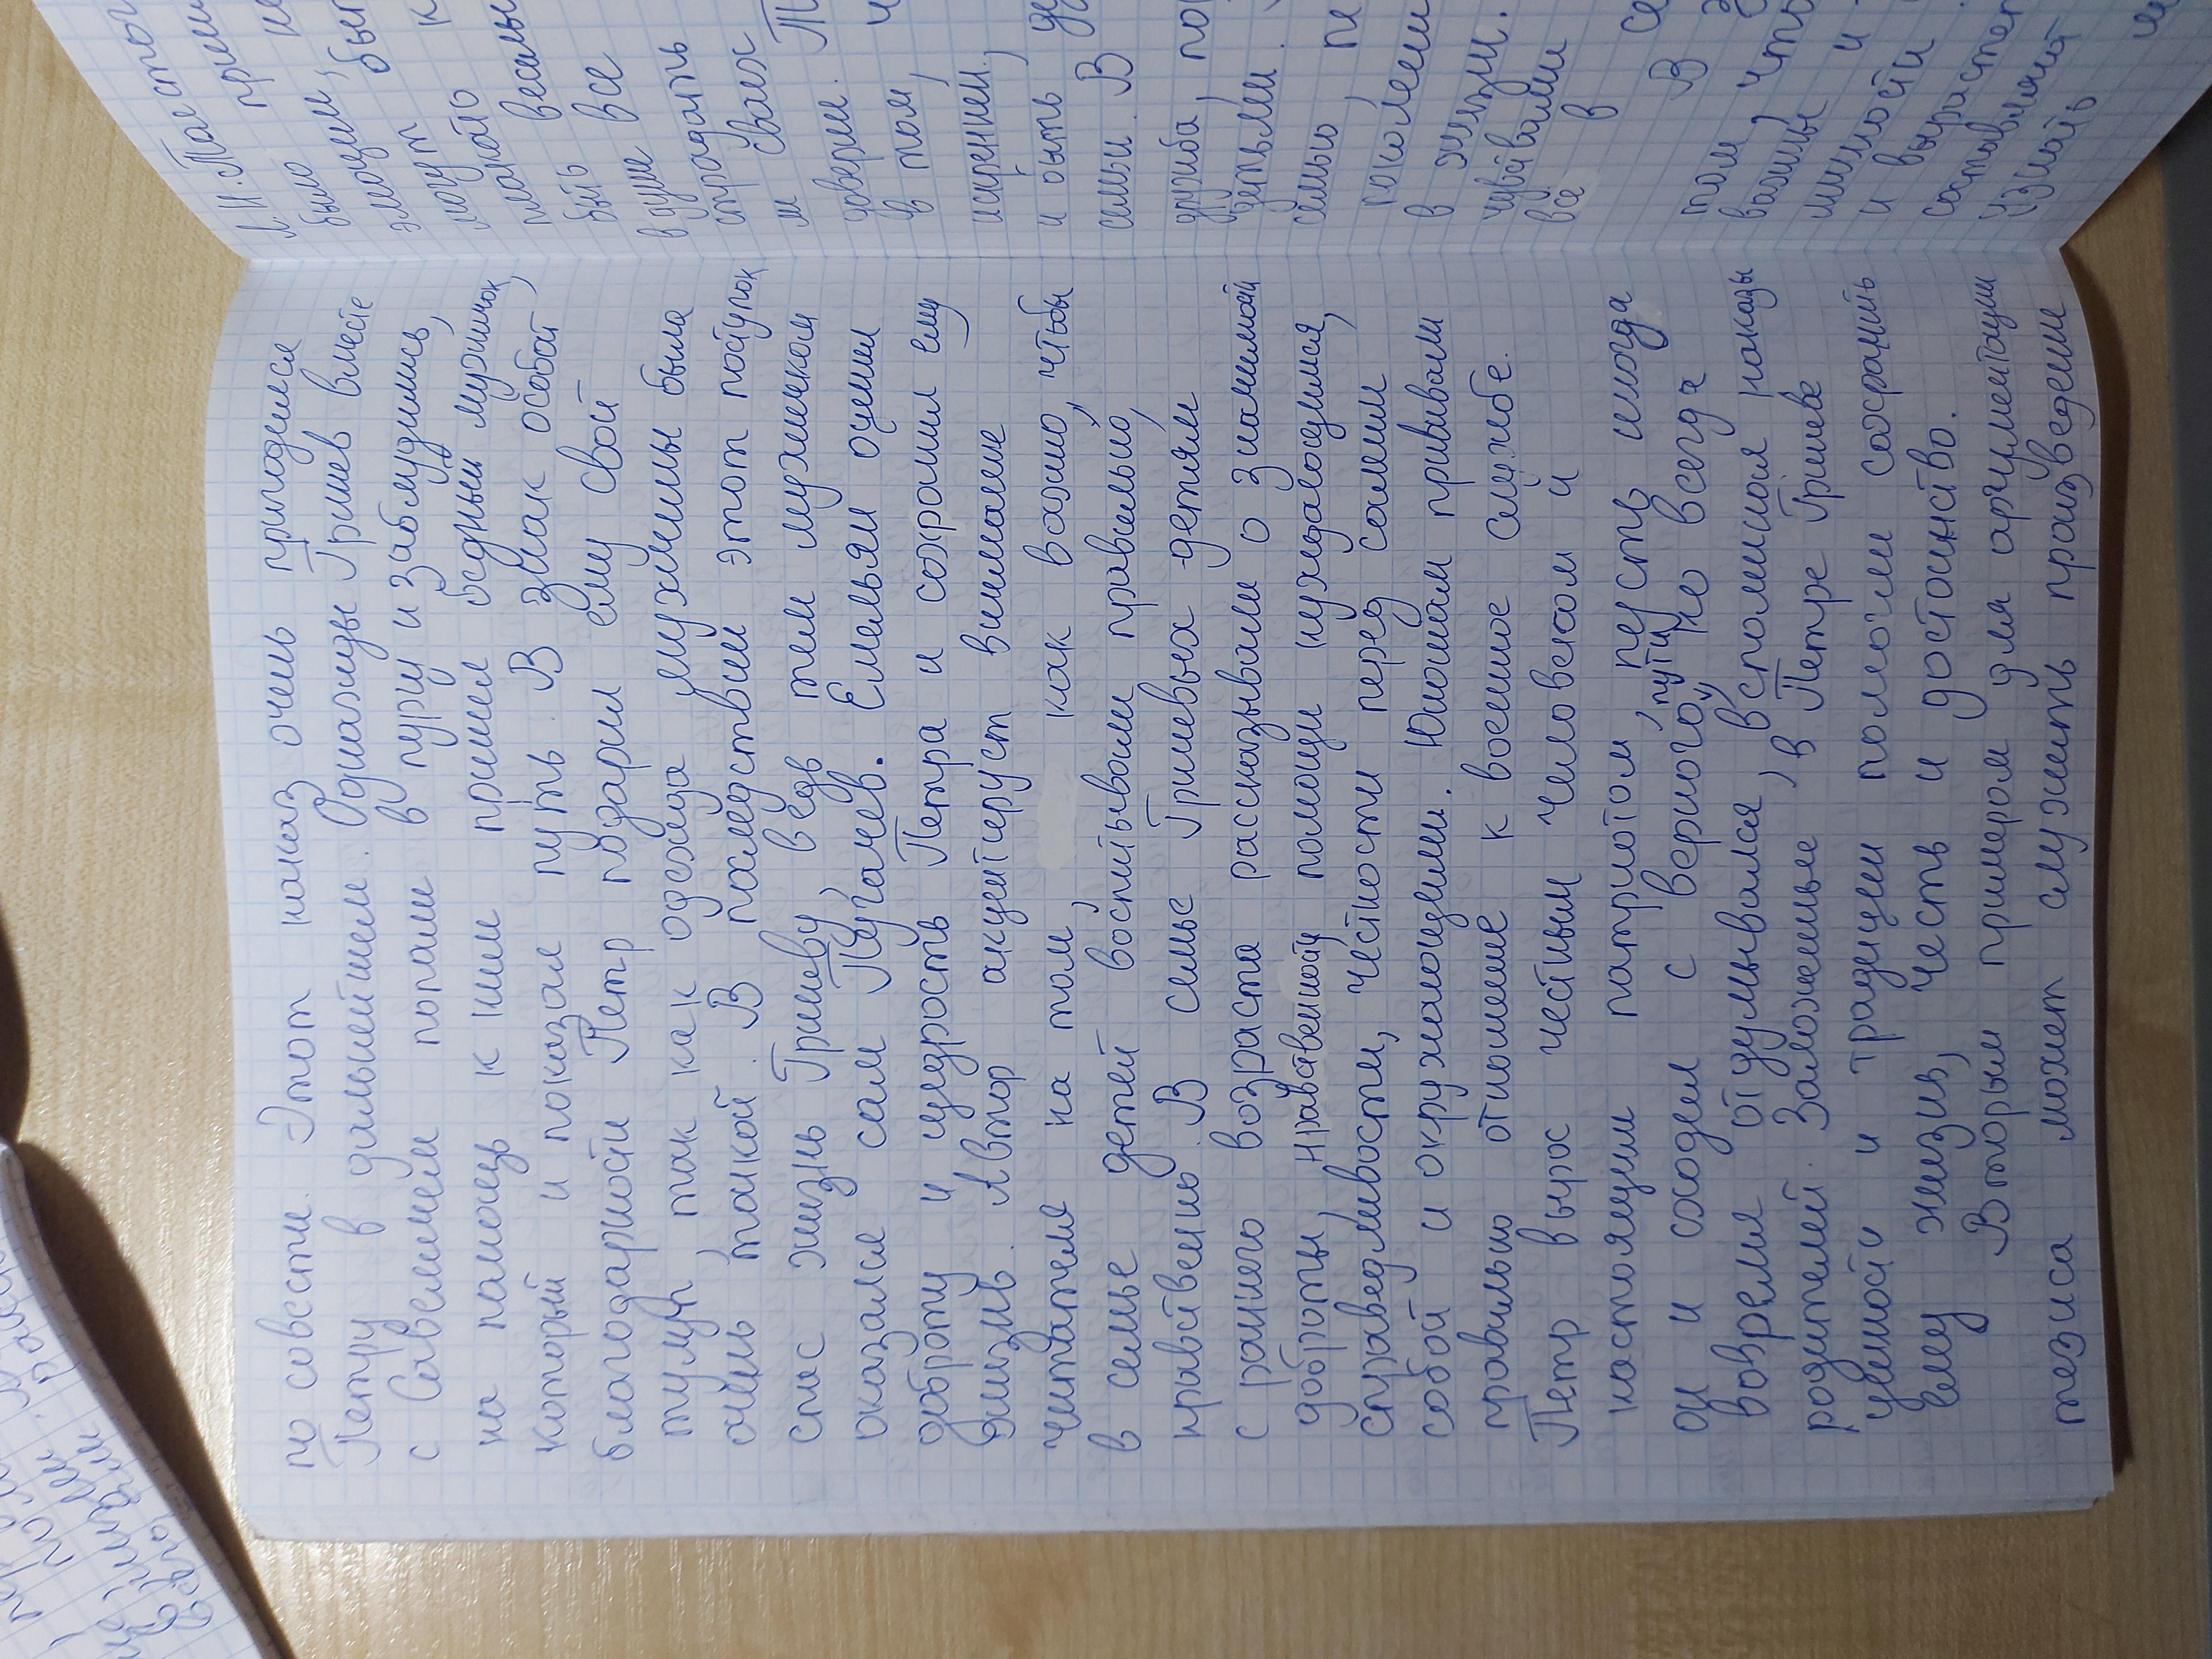 по совести. Этот наказ очень пригодился
Петру в дальнейшем. Однажды Гринев вместе
с Савельичем попали в пургу и заблудились,
на помощь к ним пришел бедный мужичок,
который и показал путь. В знак особой
благодарности Петр подарил ему свой
тулуп, так как одежда мужчины была
очень тонкой. В последствии этот поступок
спас жизнь Гриневу, ведь тем мужичком
оказался сам Пугачев. Емельян оценил
доброту и щедрость Петра и сохранил ему
жизнь. Автор акцентирует внимание
читателя на том, как важно, чтобы
в семье детей воспитывали правильно,
нравственно. В семье Гриневых детям
с раннего возраста рассказывали о значимой
доброты, нравственности, помощи нуждающимся,
справедливости, честности перед самим
собой и окружающими. Юношам прививали
правильно отношение к военное службе.
Петр вырос честным человеком и
настоящим патриотом, пусть иногда
он и сходил с верного пути, но всегда
вовремя отдумывался, вспоминая наказы
родителей. Заложенные в Петре Гриневе
ценности и традиции помогли сохранить
ему жизнь, честь и достоинство.
Вторым примером для аргументации
тезиса может служить произведение
Л.Н. Толстого
было
эмоции, был
могут к
быть все
в душе
страдать
м своих
доверии. Т
в том, ч
искренним,
и быть
семьи. В
дружба, по
детьми.
семью, п
поколени
в жизни.
чувствами
все в с
том, что
важные и
мимости
и вырастет
составляют
узнать